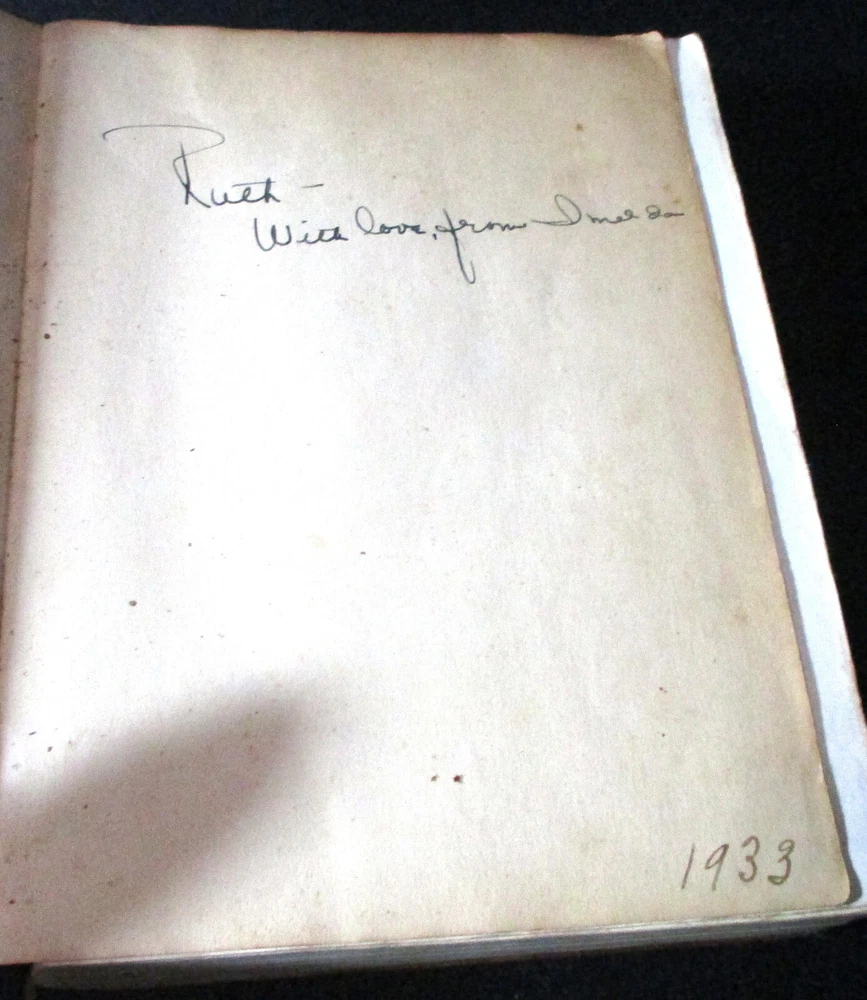 Ruth –
With love, from Imelda
1933